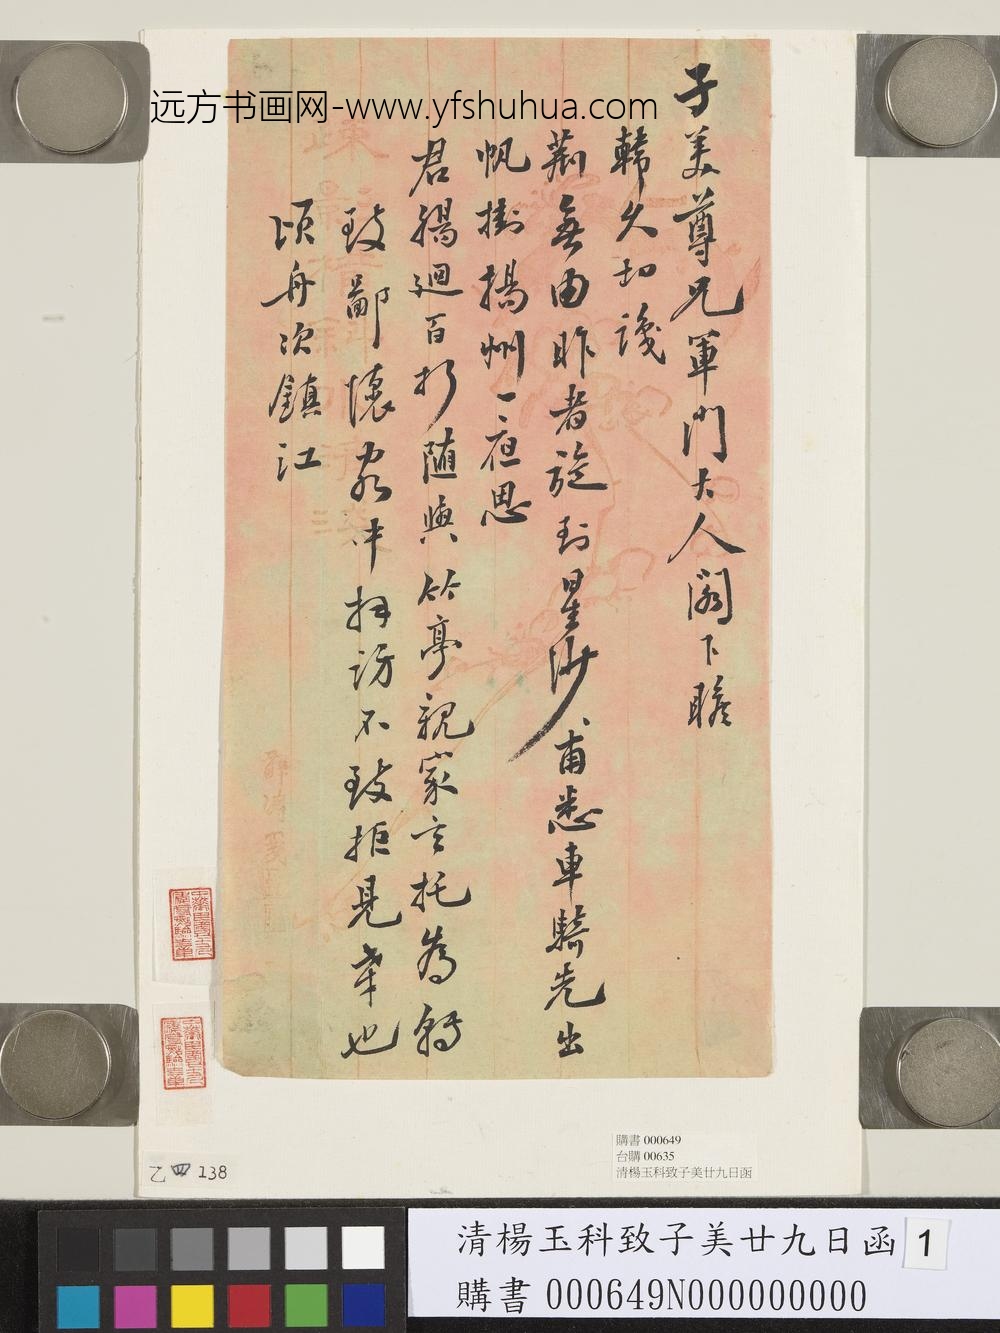 远方书画网-www.yfshuhua.com
子美尊兄軍門大人閣下瞻
韩久切謏
荊無由昨者旋到星沙甫悉車騎先出
帆掛揚州一夜思
君腸迴百折随與竹亭親家言托為轉
致鄙懷容再拜訪不致拒見幸也
頃舟次鎮江
乙 四 138
購書 000649
台購 00635
清楊玉科致子美廿九日函
清楊玉科致子美廿九日函 1
購書 000649N000000000